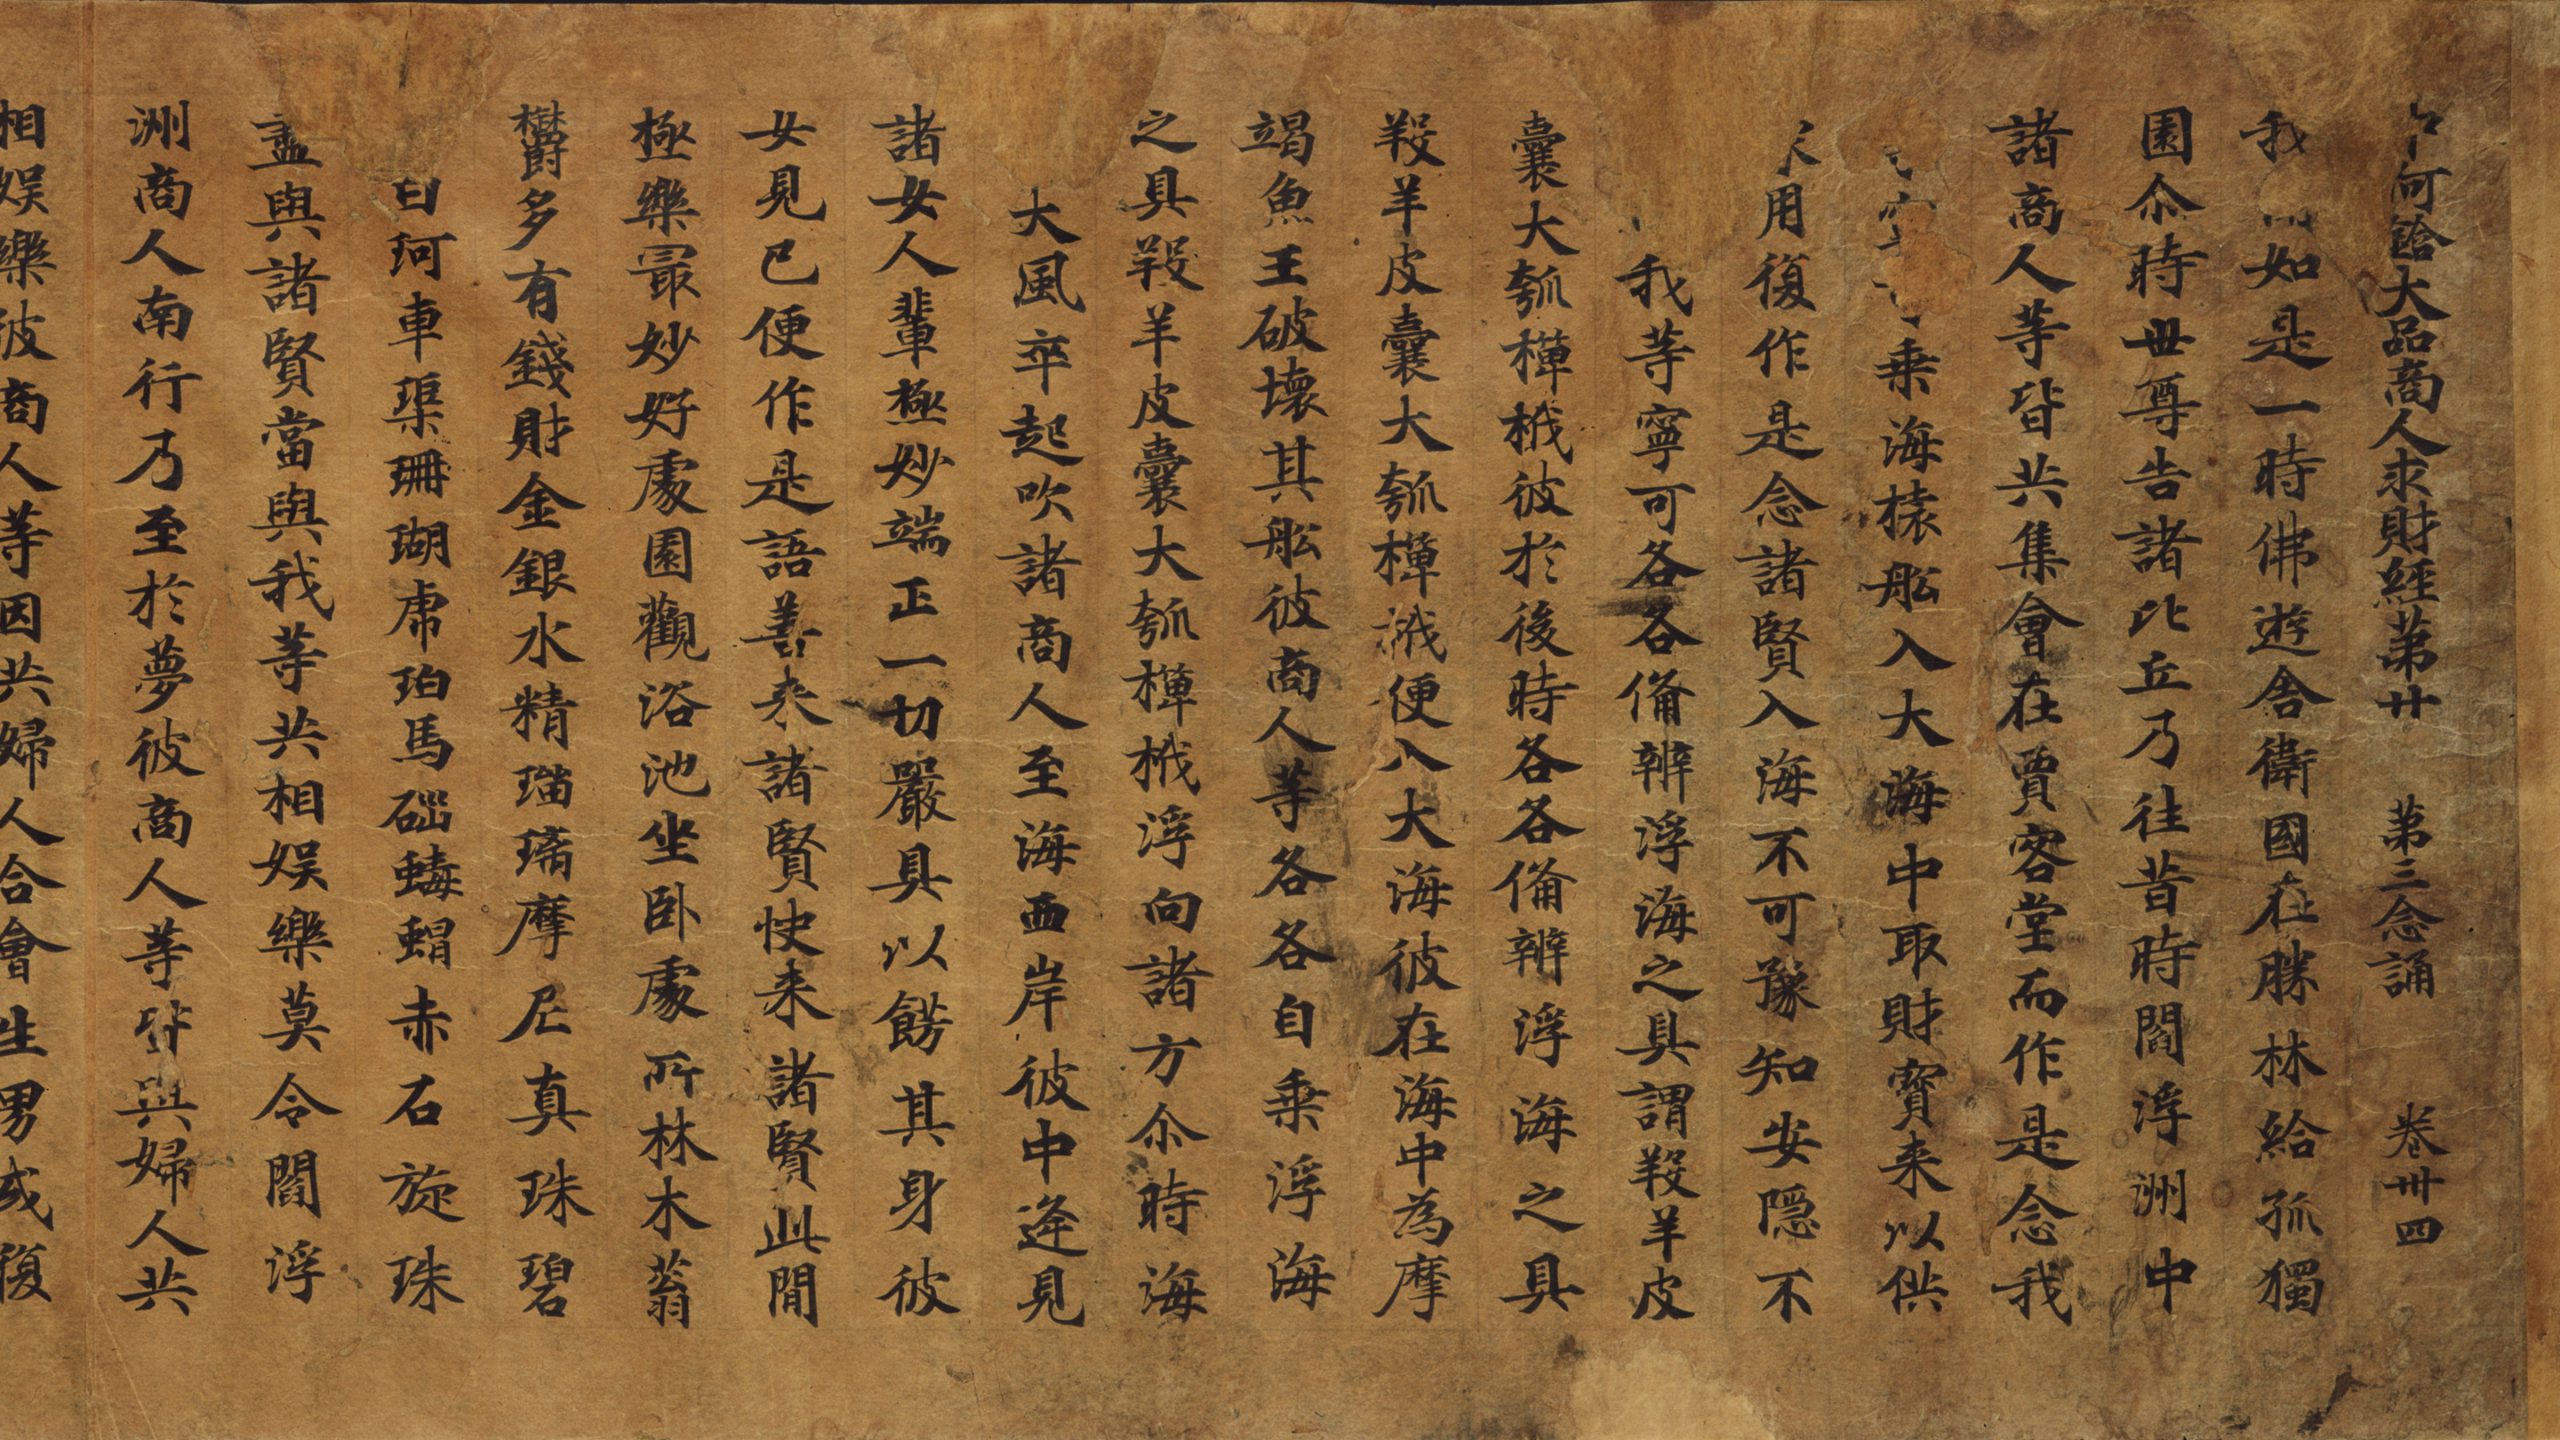 阿鋡大品商人求財經第廿 第三念誦 卷卌四
我如是一時佛遊舍衛國在勝林給孤獨
園尒時世尊告諸比丘乃往昔時閻浮洲中
諸商人等皆共集會在賈客堂而作是念我
乘海樣舩入大海中取財寶来以供
用復作是念諸賢入海不可豫知安隠不
我等寧可各各俻辦浮海之具謂羖羊皮
囊大瓠椑栰彼於後時各各俻辦浮海之具
羖羊皮囊大瓠椑栰便入大海彼在海中為摩
竭魚王破壞其舩彼商人等各各自乗浮海
之具羖羊皮囊大瓠椑栰浮向諸方尒時海
大風卒起吹諸商人至海西岸彼中逢見
諸女人輩極妙端正一切嚴具以餝其身彼
女見已便作是語善来諸賢快来諸賢此間
極樂冣妙好處園觀浴池坐卧處所林木蓊
欝多有錢財金銀水精瑠璃摩尼真珠碧
珂車渠珊瑚虎珀馬碯蟕蝐赤石旋珠
盡與諸賢當與我等共相娱樂莫令閻浮
洲商人南行乃至於夢彼商人等皆與婦人共
相娱樂彼商人等因共婦人合會生男或復